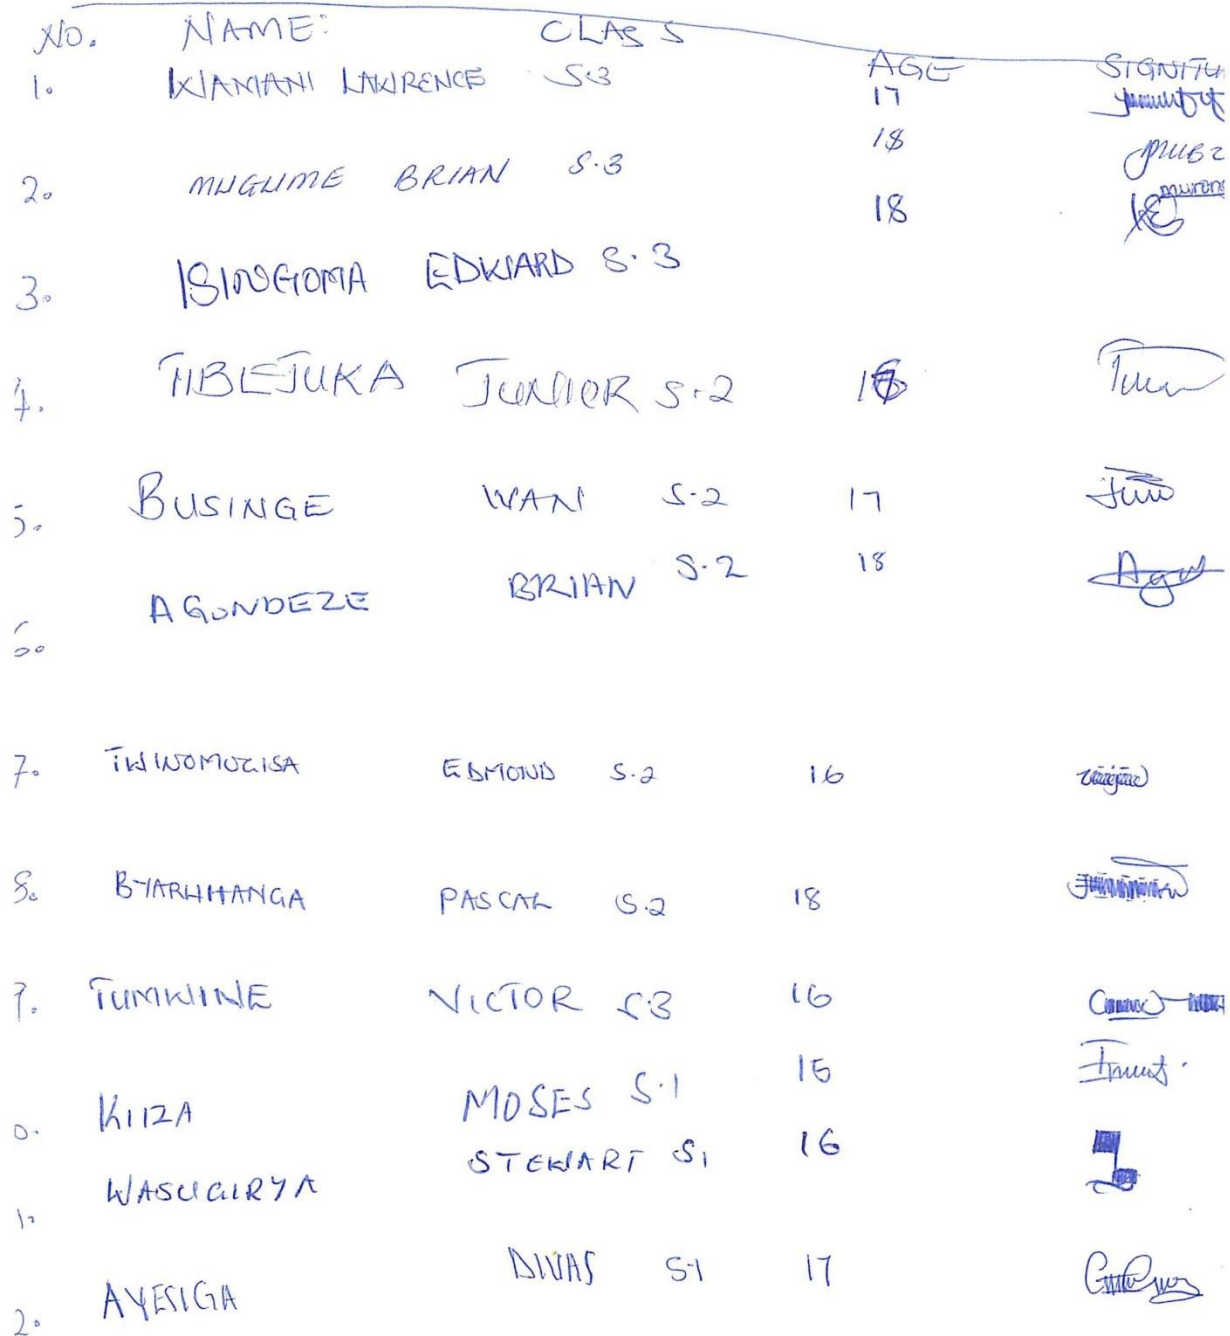 NO. NAME: CLASS AGE SIGNITU
1. WAMANI LAWRENCE S.3 17
2. MUGUME BRIAN S.3 18
3. ISINGOMA EDWARD S.3 18
4. TIBEJUKA JUNIOR S.2
5. BUSINGE WAN S.2 17
6. AGONDEZE BRIAN S.2 18
7. TWINOMUGISA EDMOND S.2 16
8. BYARUHANGA PASCAL S.2 18
9. TUMWINE VICTOR S.3 16
0. KIIZA MOSES S.1 16
1. WASUGIRYA STEWART S1 16
2. AYESIGA DIVAS S.1 17